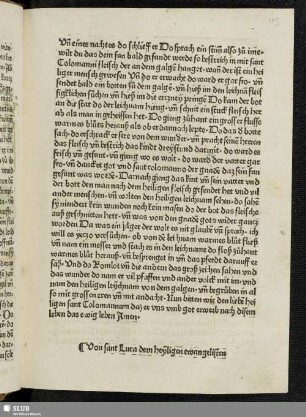 Vñ eines nachtes do schlieff er Do sprach ein stim also zu ime
wilt du das dein sun bald gesundt werde so bestreich in mit sant
Colomanni fleisch der an dem galgẽ hanget· wañ der ist ein hei
liger mensch gewesen Vñ do er erwacht do ward er gar fro· vñ
sendet bald ein botten zů dem galgẽ vñ hieß im den leichnã fleisch
siglichen sůchen vñ hieß im die ertzney pringẽ Do kam der bot
an die stat do der leichnam hieng· vñ schnit ein stuck fleisch her
ab als man in geheissen het· Do gieng zůhant ein grosser flusse
warmes blůts herauß als ob er dannoch lepte· Do das d̕ botte
sach· do erschrack er ser von dem wunder· vñ pracht seinē herren
das fleisch vñ bestrich das kindt dreystund darmit· do ward es
frisch vñ gesunt· vñ gieng wo es wolt· do ward der vater gar
fro· vñ dancket got vnd sant colomanno der gnadē daz sein sun
gesunt was wordē· Darnach gieng das kint vñ sein vater vnd
der bott den man nach dem heiligen fleisch gesendet het vnd vil
ander menschen· vñ wolten den heiligen leichnam sehen· do sahē
sy niendert kein wunden noch kein masen do der bot das fleisch
auß geschnitten hett· vñ was von den gnadē gots wider gantz
worden Da was ein jäger der wolt es nit glaubē vñ sprach· ich
will es yetzo versůchen· ob von dē leichnam warmes blůt fließ
vñ nam ein messer vnd stach es in den leichnamē do floß zůhant
warmes blůt herauß· vñ besprenget in vñ das pferde darauff er
saß· Vnd do Romolt vñ die andern das groß zeichen sahen vnd
das wunder do nam er vil pfaffen vnd ander volck mit im· vnd
nam den heiligen leychnam von dem galgen· vñ begrůben in al
so mit grossen eren vñ mit andacht· Nun bitten wir den liebē hei
ligen sant Colomannum daz er vns vmb got erwerb nach disem
leben das ewig leben Amen·
Von sant Luca dem heyligen ewangelisten
SLUB
Wir führen Wissen.